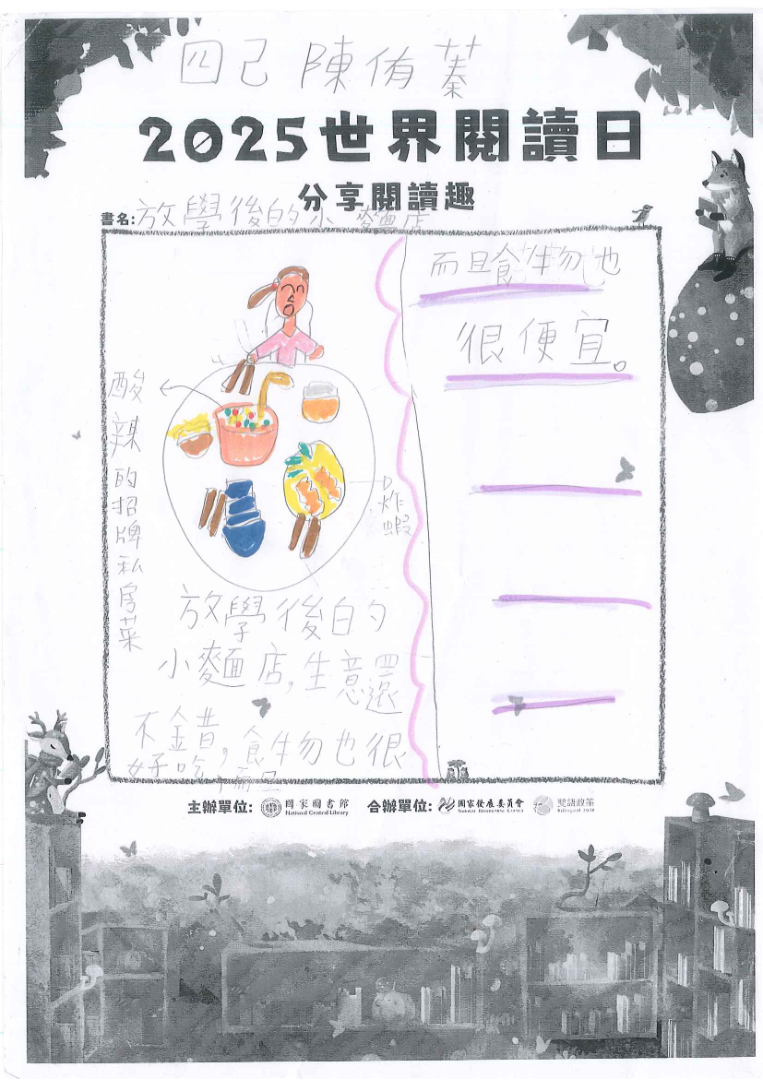 四己 陳侑蓁
2025世界閱讀日
分享閱讀趣
書名:放學後的小麵店
酸辣的招牌私房菜
炸蝦
放學後的
小麵店,生意還
不錯,食物也很
好吃
而且食物也
很便宜。
主辦單位: 國家圖書館 National Central Library 合辦單位: 國家發展委員會 National Development Council 雙語政策 Bilingual 2030